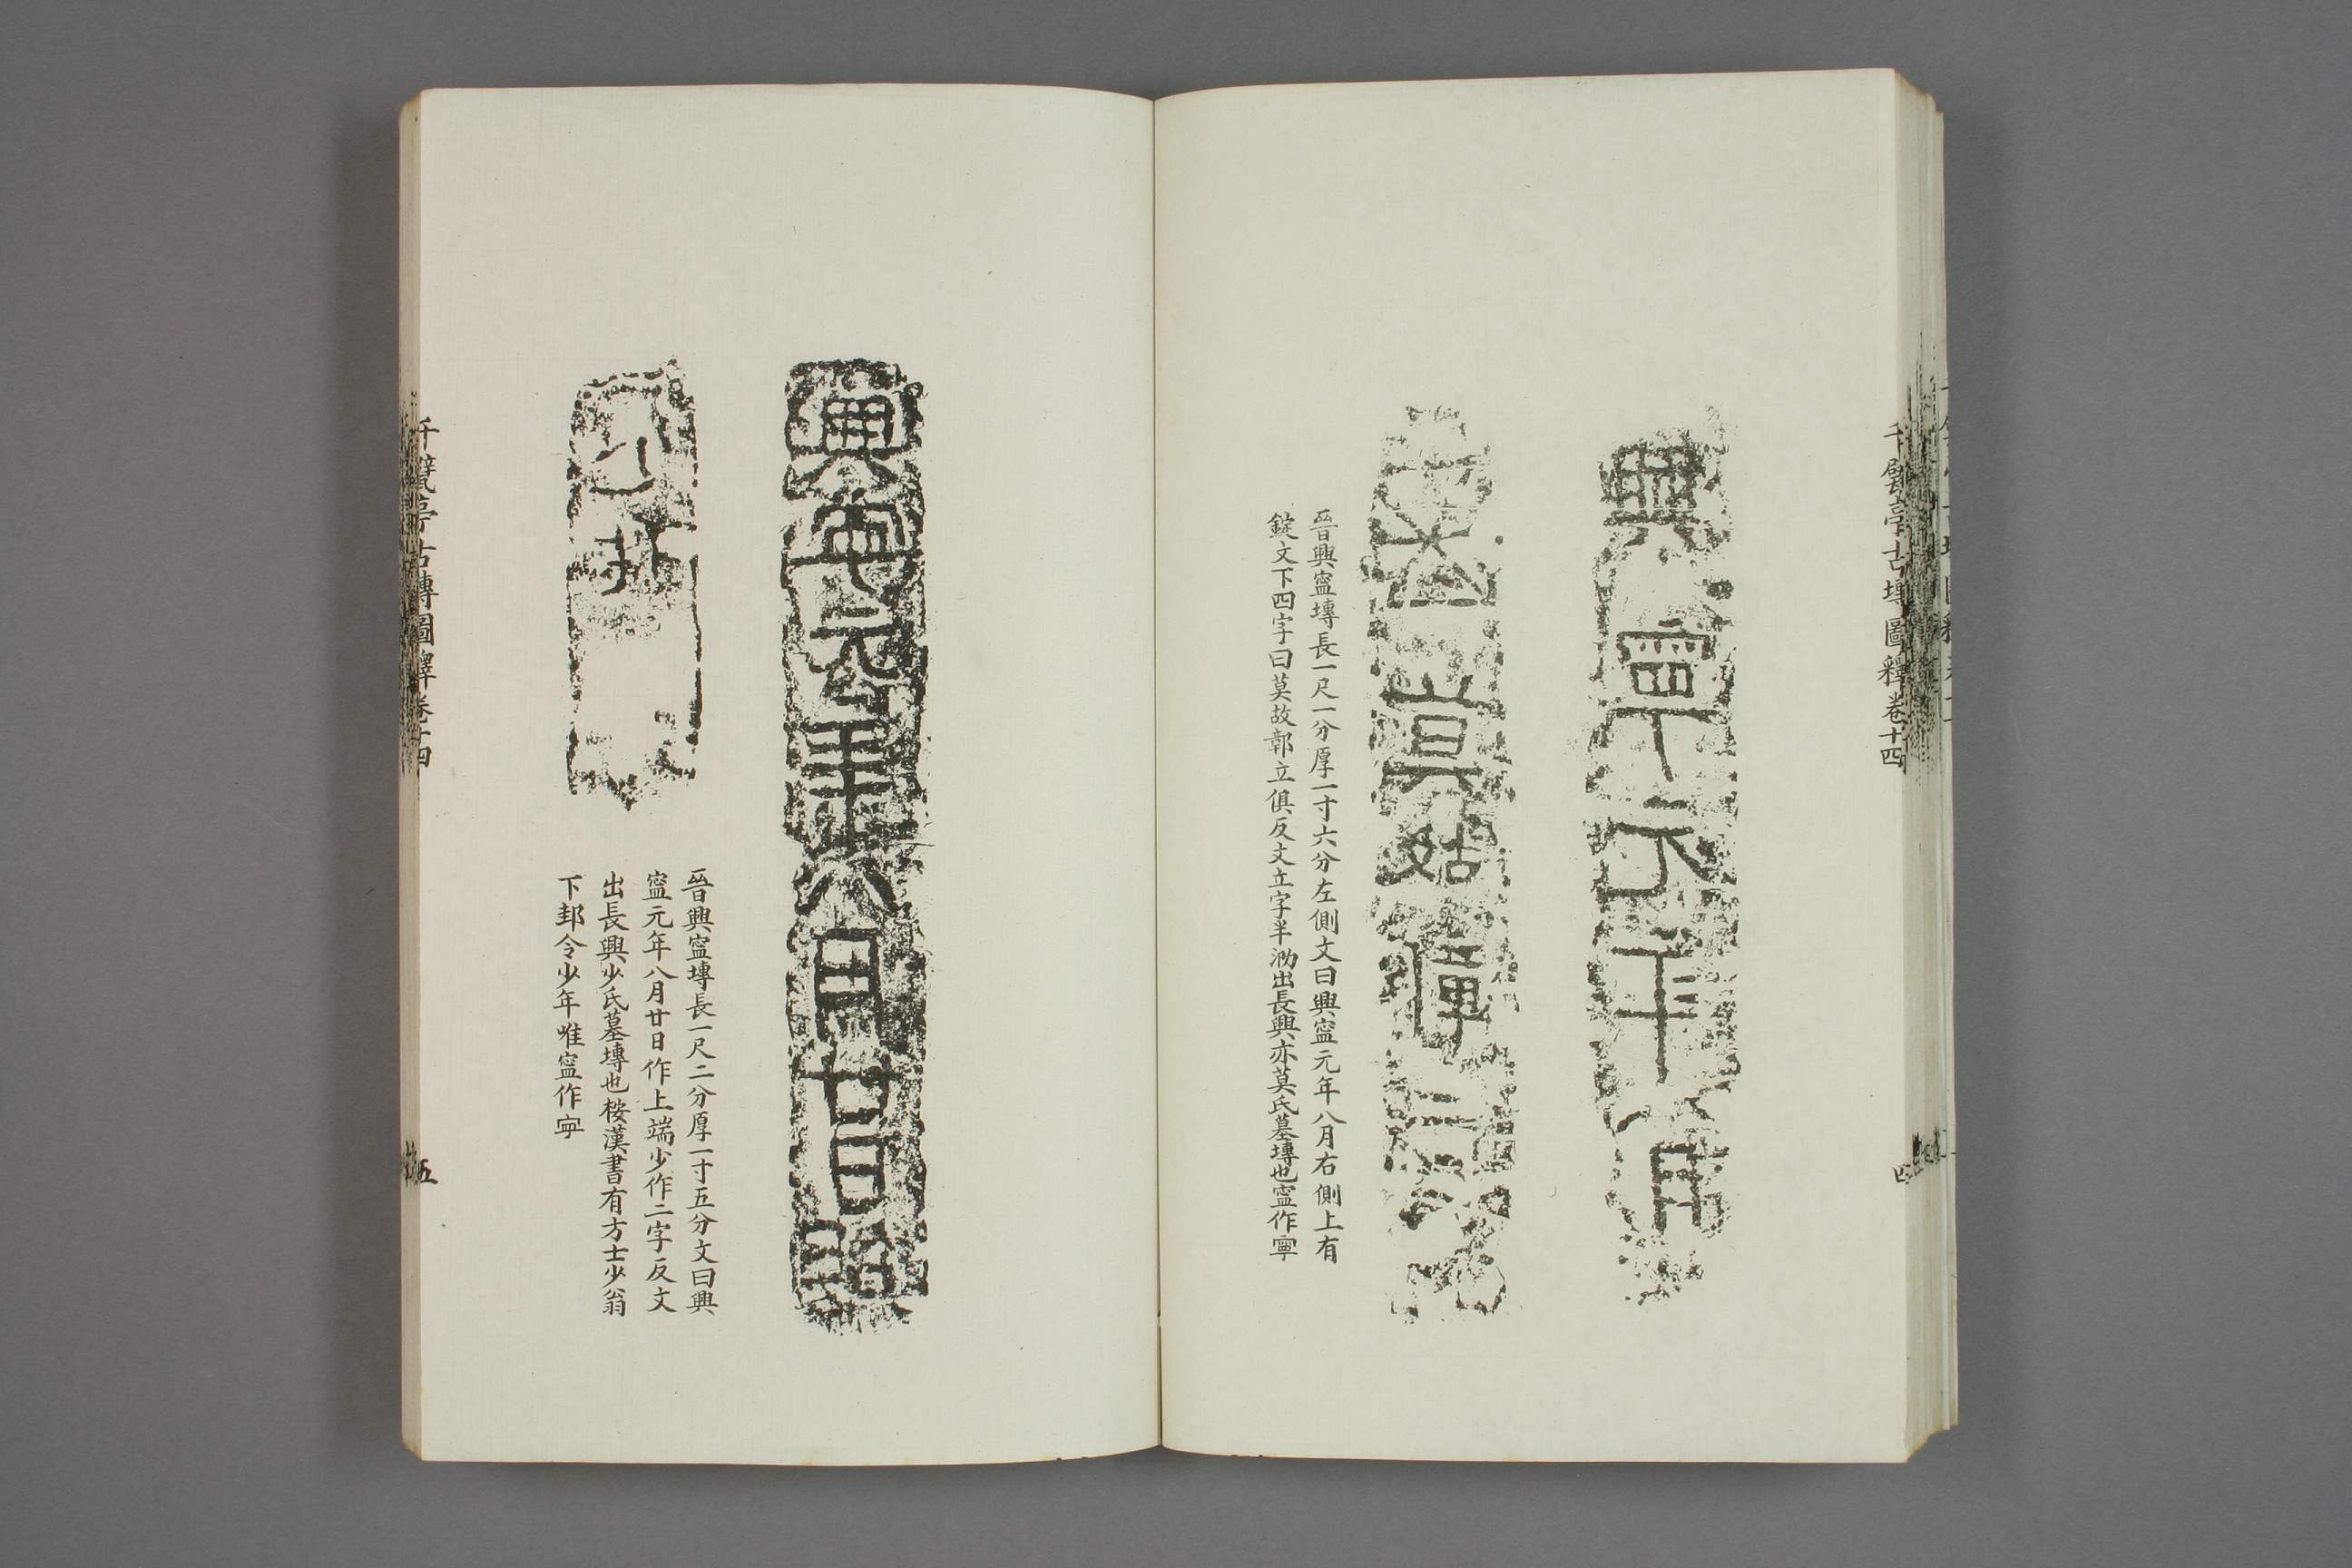 千甓亭古塼圖釋卷十四
四
晉興寍塼長一尺一分厚一寸六分左側文曰興寍元年八月右側上有
錠文下四字曰莫故鄣立俱反文立字半泐出長興亦莫氏墓塼也寍作寧
興寧元年八月廿日
晉興寍塼長一尺二分厚一寸五分文曰興
寍元年八月廿日作上端少作二字反文
出長興少氏墓塼也桉漢書有方士少翁
下邽令少年唯寍作寜
千甓亭古塼圖釋卷十四
五